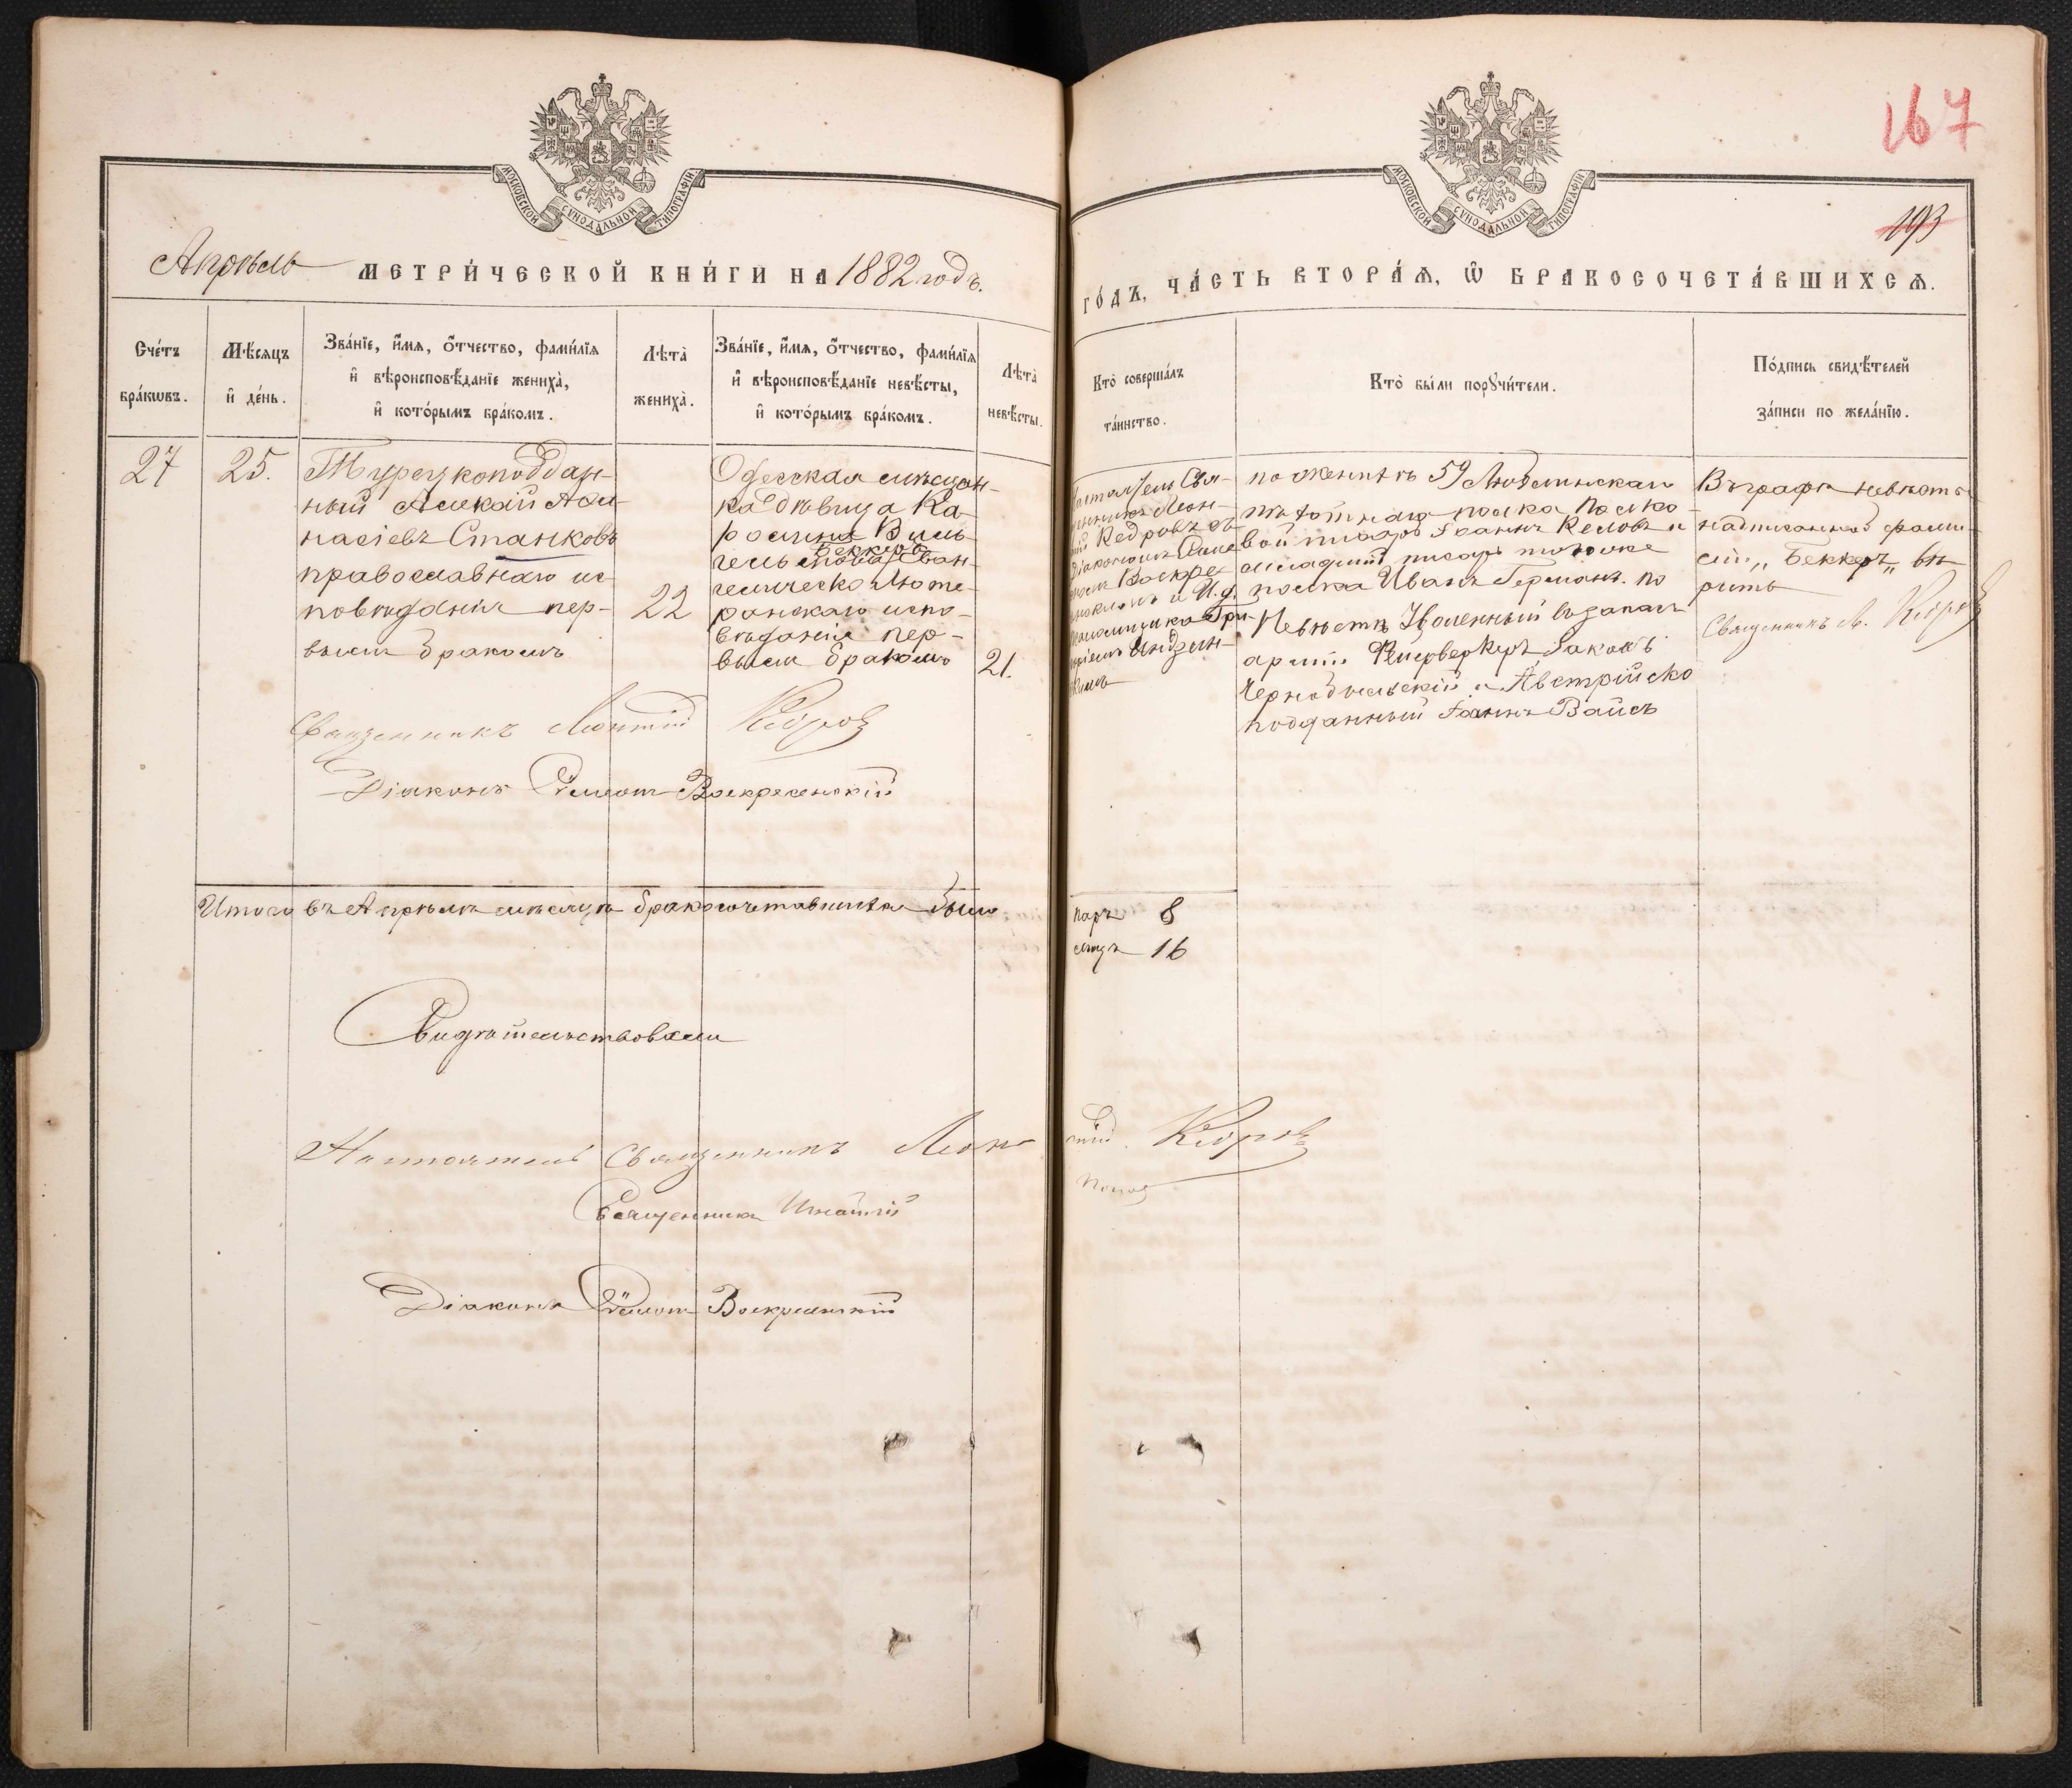 167
193
МОСКОВСКОЙ СѴНОДАЛЬНОЙ ТИПОГРАФІИ
МОСКОВСКОЙ СѴНОДАЛЬНОЙ ТИПОГРАФІИ
Апрѣль МЕТРИ́ЧЕСКОЙ КНИ́ГИ НА 1882 годъ.
ГО́ДЪ, ЧА́СТЬ ВТОРА́Ѧ, Ѽ БРАКОСОЧЕТА́ВШИХСѦ.
Сче́тъ
бра́кѡвъ.
Мѣ́сѧцъ
и҆ де́нь.
Зва́нїе, и҆́мѧ, ѻ҆́тчество, фами́лїѧ
и҆ вѣроисповѣ́данїе жениха̀,
и҆ кото́рымъ бра́комъ.
Лѣта̀
жениха̀.
Зва́нїе, и҆́мѧ, ѻ҆́тчество, фами́лїѧ
и҆ вѣроисповѣ́данїе невѣ́сты,
и҆ кото́рымъ бра́комъ.
Лѣта̀
невѣ́сты.
Кто̀ соверша́лъ
та́инство.
Кто̀ бы́ли порꙋчи́тели.
По́дпись свидѣ́телей
за́писи по жела́нїю.
27
25.
Турецкоподдан-
ный Алексій Аѳа-
насіевъ Станковъ
православнаго ис-
повѣданія пер-
вымъ бракомъ
22
Одесская мѣщан-
ка дѣвица Ка-
ролина Виль-
Беккеръ
гельмова Еван-
гелическо Люте-
ранскаго испо-
вѣданія пер-
вымъ бракомъ
21.
Настоятель Свя-
щенникъ Леон-
тій Кедровъ съ
Діакономъ
Воскре
и И. д.
Псаломщика Гри-
горіемъ
по женихѣ 59 Люблинскаго
пѣхотнаго полка полко-
вой писарь Іоаннъ и
младшій писарь того же
полка Иванъ Германъ. по
Невѣстѣ Уволенный въ запасъ
арміи Фейерверкеръ Іаковъ
Чернобыльскій и Австрійско
подданный Іоаннъ Вайсъ
Въ графѣ невѣсты
надписанной фами-
ліи „Беккеръ„ вѣ
рить
Священникъ Л. Кедровъ
Священникъ Леонтій Кедровъ
Діаконъ Воскресенскій
Итого въ Апрѣлѣ мѣсяцѣ бракосочетавшихся было
паръ 8
лицъ 16
Свидѣтельствовали
Настоятель Священникъ Леон
тій Кедровъ
Священникъ Игнатій
Попов
Діаконъ Воскресенскій